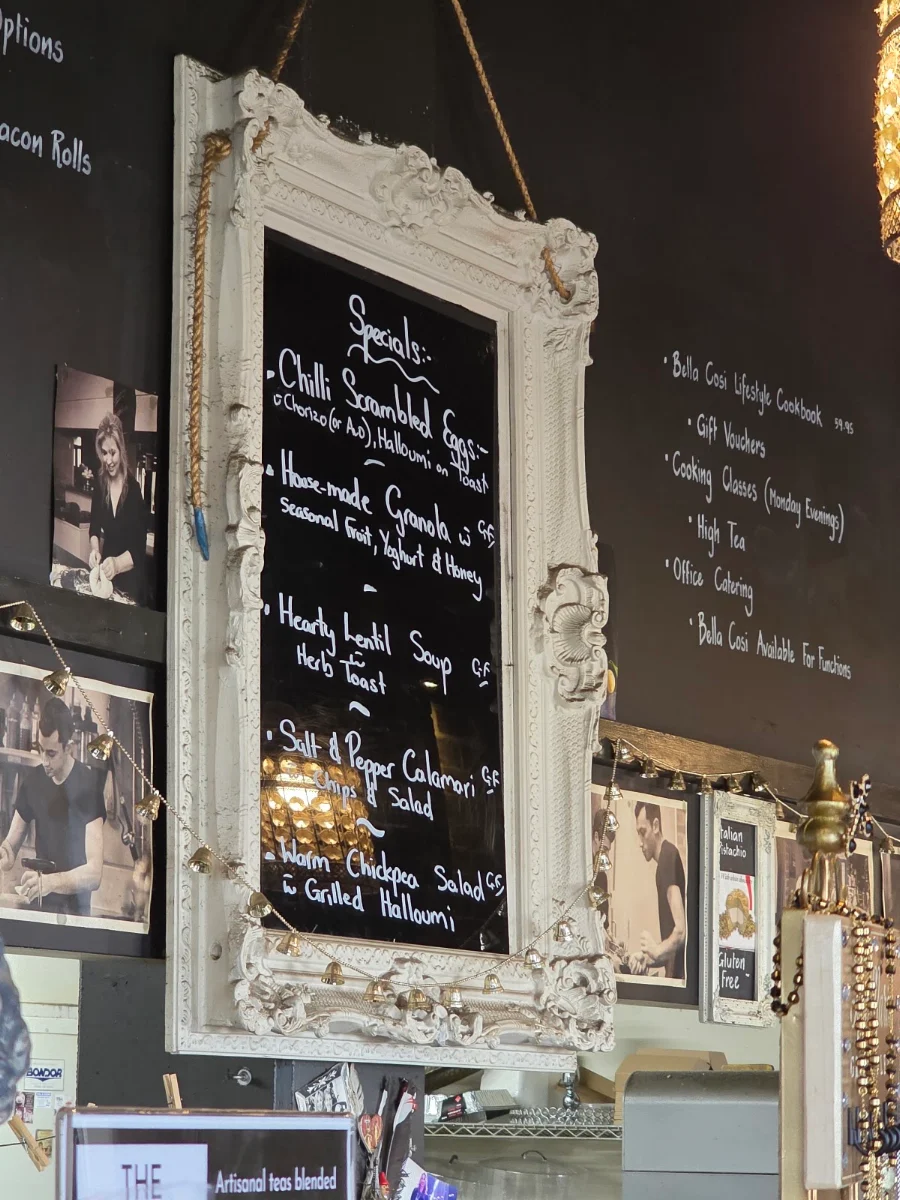 Options
acon Rolls
Specials:-
• Chilli Scrambled Eggs:-
w Chorizo (or A.O), Halloumi on Toast
• House-made Granola w G.F,
Seasonal Fruit, Yoghurt & Honey
• Hearty Lentil Soup G.F
Herb Toast
• Salt & Pepper Calamari G.F
Chips & Salad
• Warm Chickpea Salad G.F,
w Grilled Halloumi
• Bella Cosi Lifestyle Cookbook 59.95
• Gift Vouchers
• Cooking Classes (Monday Evenings)
• High Tea
• Office Catering
• Bella Cosi Available For Functions
Italian
Pistachio
Gluten
Free
BONDOR
THE
Artisanal teas blended